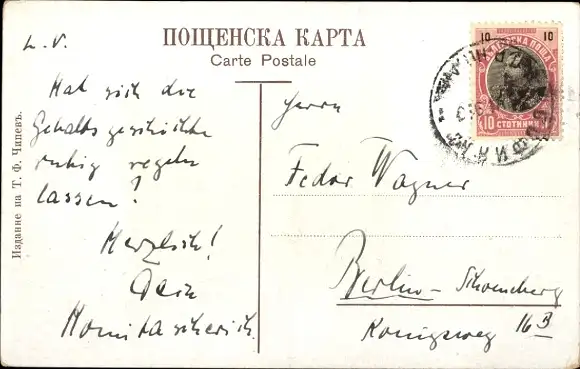 L. V.
ПОЩЕНСКА КАРТА
Carte Postale
Hat sich die
Gehaltsgeschichte
ruhig regeln
lassen?
Herzlich!
Dein
Издание на Т. Ф. Чипевъ.
10 10
ПОЩА
10 СТОТИНКИ
Herrn
Fedor Wagner
Berlin - Schöneberg
Königsweg 16 B